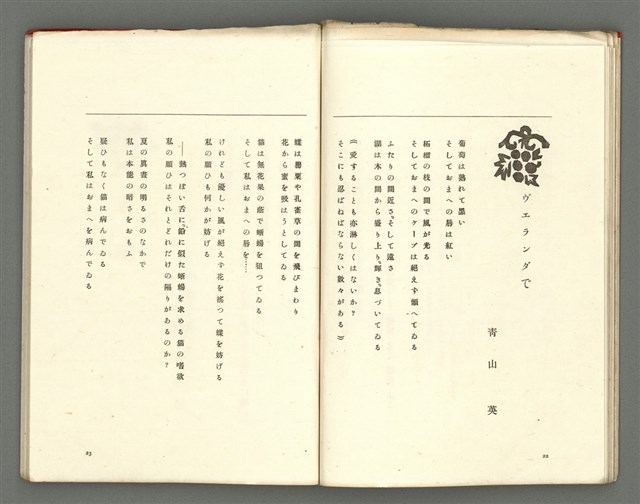 ヴエランダで
青山英
葡萄は熟れて黒い
そしておまへの唇は紅い
柘榴の枝の間で風が光る
そしておまへのケープは絶えず顫へてゐる
ふたりの間近さ。そして遠さ
湖は木の間から盛り上り、輝き、息づいてゐる
(愛することも亦淋しくはないか?
そこにも忍ばねばならない數々がある)
22
蝶は罌粟や孔雀草の間を飛びまわり
花から蜜を吸はうとしてゐる
猫は無花果の蔭で蜥蜴を狙つてゐる
そして私はおまへの唇を……
けれども優しい風が絶えず花を搖つて蝶を妨げる
私の願ひも何かが妨げる
——熱つぽい舌に、鉛に似た蜥蜴を求める猫の嗜欲
私の願ひはそれとどれだけの隔りがあるのか?
夏の眞晝の明るさのなかで
私は本能の暗さをおもふ
疑ひもなく猫は病んでゐる
そして私はおまへを病んでゐる
23